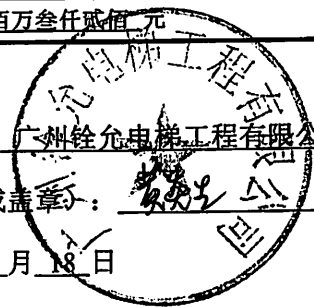 百万叁仟贰佰 元
广州铨允电梯工程有限公
或盖章）：
月 18 日
广州铨允电梯工程有限公司